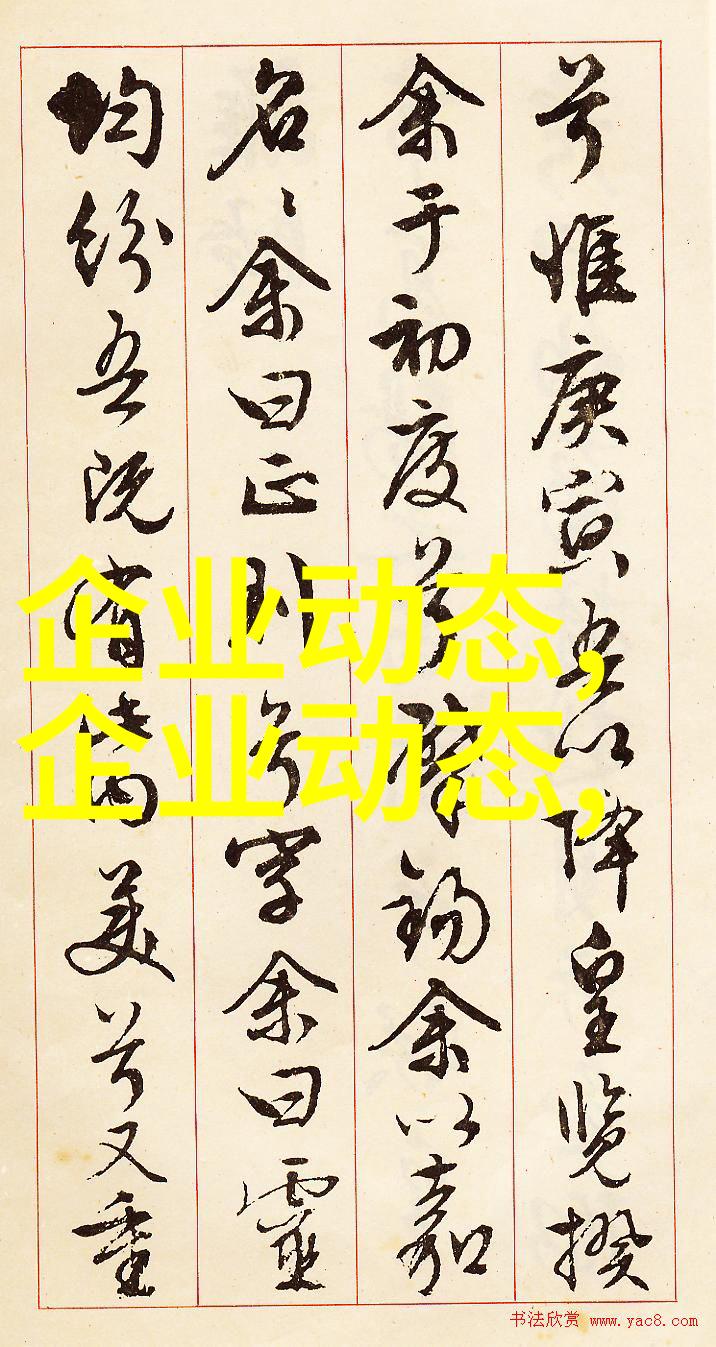 兮惟庚寅吾以降皇覽揆
余于初度兮肇錫余以嘉
名〻余曰正則兮字余曰靈
均紛吾既有此內美兮又重
企业动态,
企业动态,
书法欣赏 www.yac8.com